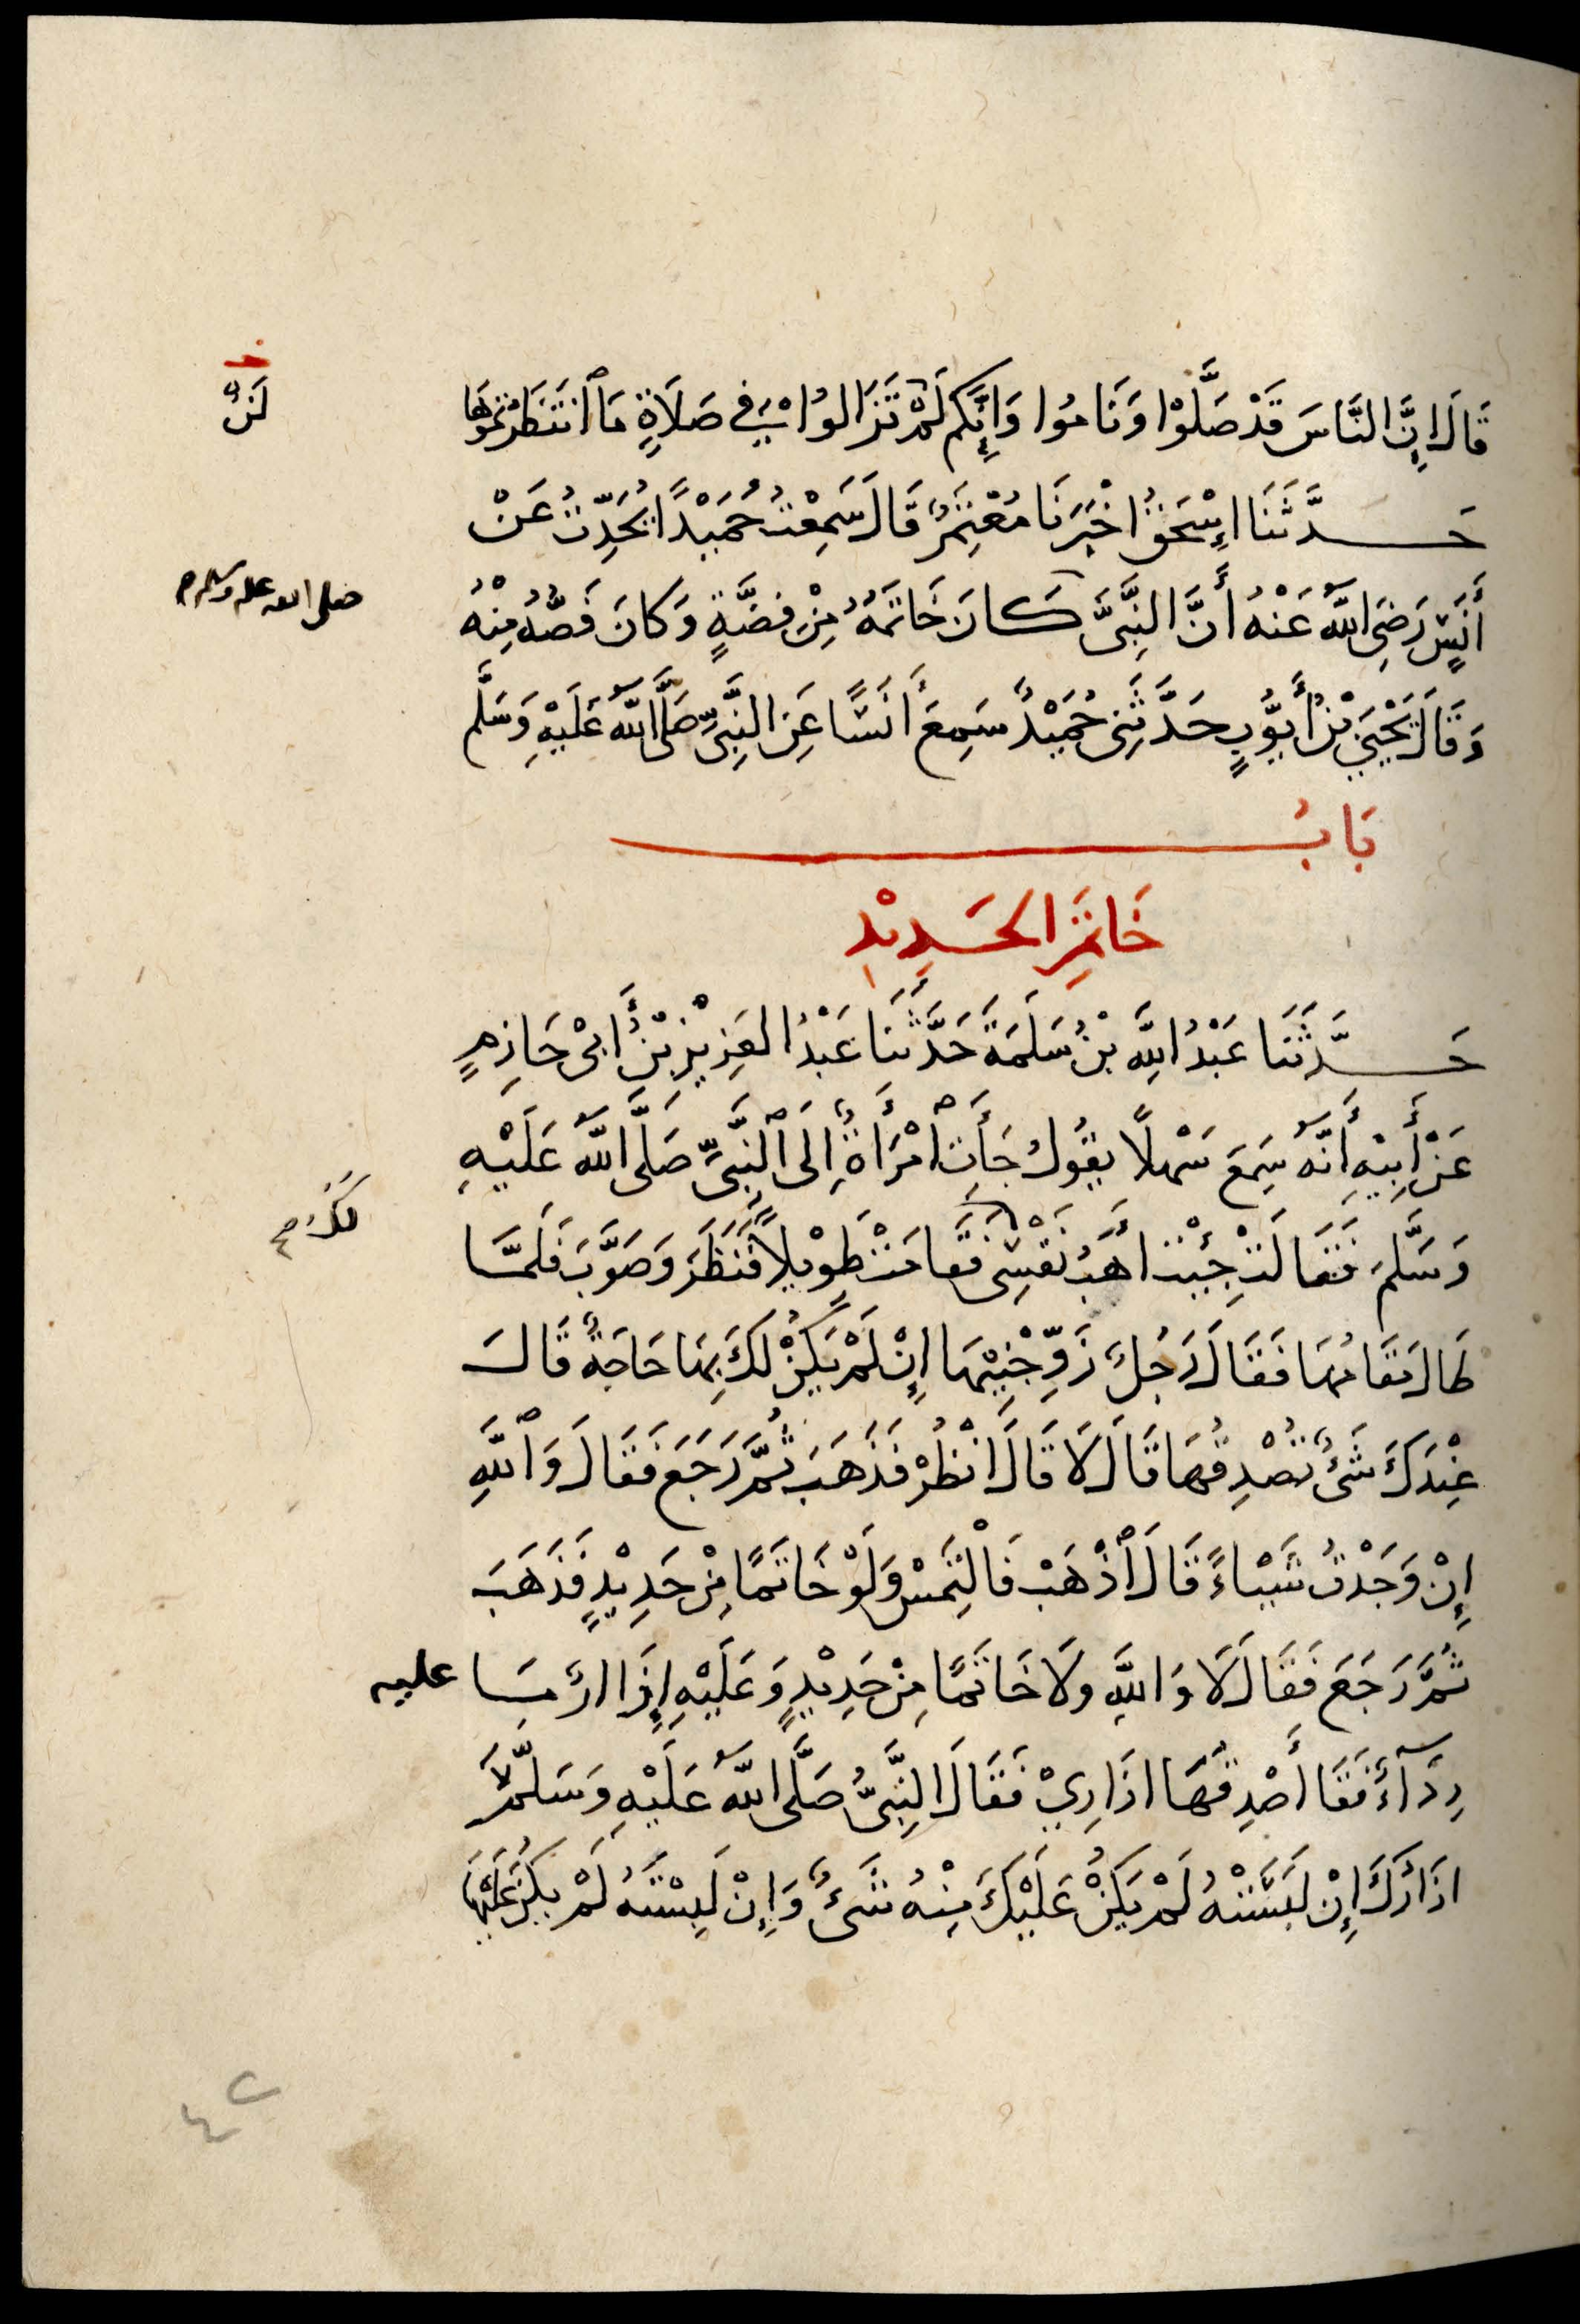 قَالَ إِنَّ النَّاسَ قَدْ صَلَّوْا وَنَامُوا وَإِنَّكُم لَمْ تَزَالُوا فِي صَلَاةٍ مَا ٱنتَظَرْتُمُوهَا
لَنْ
حَدَّثَنَا إِسْحَقُ اخْبَرَنَا مُعْتَمِرٌ قَالَ سَمِعْتُ حُمَيْدًا يُحَدِّثُ عَنْ
أَنَسٍ رَضِيَ اللَّهُ عَنْهُ أَنَّ النَّبِيَّ كَانَ خَاتَمُهُ مِنْ فِضَّةٍ وَكَانَ فَصُّهُ مِنْهُ
صلى الله عليه وسلم
وَقَالَ يَحْيَى بْنُ أَيُّوبٍ حَدَّثَنِى حُمَيْدٌ سَمِعَ أَنَسًا عَنِ النَّبِيِّ صَلَّى اللَّهُ عَلَيْهِ وَسَلَّم
بَابُ
خَاتَمِ الحَدِيْدِ
حَدَّثَنَا عَبْدُ اللَّهِ بْنُ سَلَمَةَ حَدَّثَنَا عَبْدُ العَزِيْزِ بْنُ أَبِىْ حَازِمٍ
عَنْ أَبِيْهِ أَنَّهُ سَمِعَ سَهْلًا يَقُولُ جَأَتِ ٱمْرَأَةٌ إِلَى ٱلنَّبِيِّ صَلَّى اللَّهُ عَلَيْهِ
وَسَلَّمَ فَقَالَتْ جِئْتُ أَهَبُ نَفْسِى فَقَامَتْ طَوِيْلًا فَنَظَرَ وَصَوَّبَ فَلَمَّا
طَالَ مَقَامُهَا فَقَالَ رَجُلٌ زَوِّجْنِيْهَا إِنْ لَمْ يَكُنْ لَكَ بِهَا حَاجَةٌ قَالَ
عِنْدَكَ شَىْءٌ تُصْدِقُهَا قَالَ لَا قَالَ انْظُرْ فَذَهَبَ ثُمَّ رَجَعَ فَقَالَ وَٱللَّهِ
إِنْ وَجَدْتُ شَيْاءً قَالَ ٱذْهَبْ فَالْتَمِسْ وَلَوْ خَاتَمًا مِنْ حَدِيْدٍ فَذَهَبَ
ثُمَّ رَجَعَ فَقَالَ لَا وَاللَّهِ وَلَا خَاتَمًا مِنْ حَدِيْدٍ وَعَلَيْهِ إِزَارٌ مَا عليه
رِدَآءٌ فَقَا أُصْدِقُهَا ازَارِيْ فَقَالَ النَّبِيُّ صَلَّى اللَّهُ عَلَيْهِ وَسَلَّمَ
ازَارُكَ إِنْ لَبِسَتْهُ لَمْ يَكُنْ عَلَيْكَ مِنْهُ شَىْءٌ وَإِنْ لَبِسْتَهُ لَمْ يَكُنْ عَلَيْهَا
٤٢